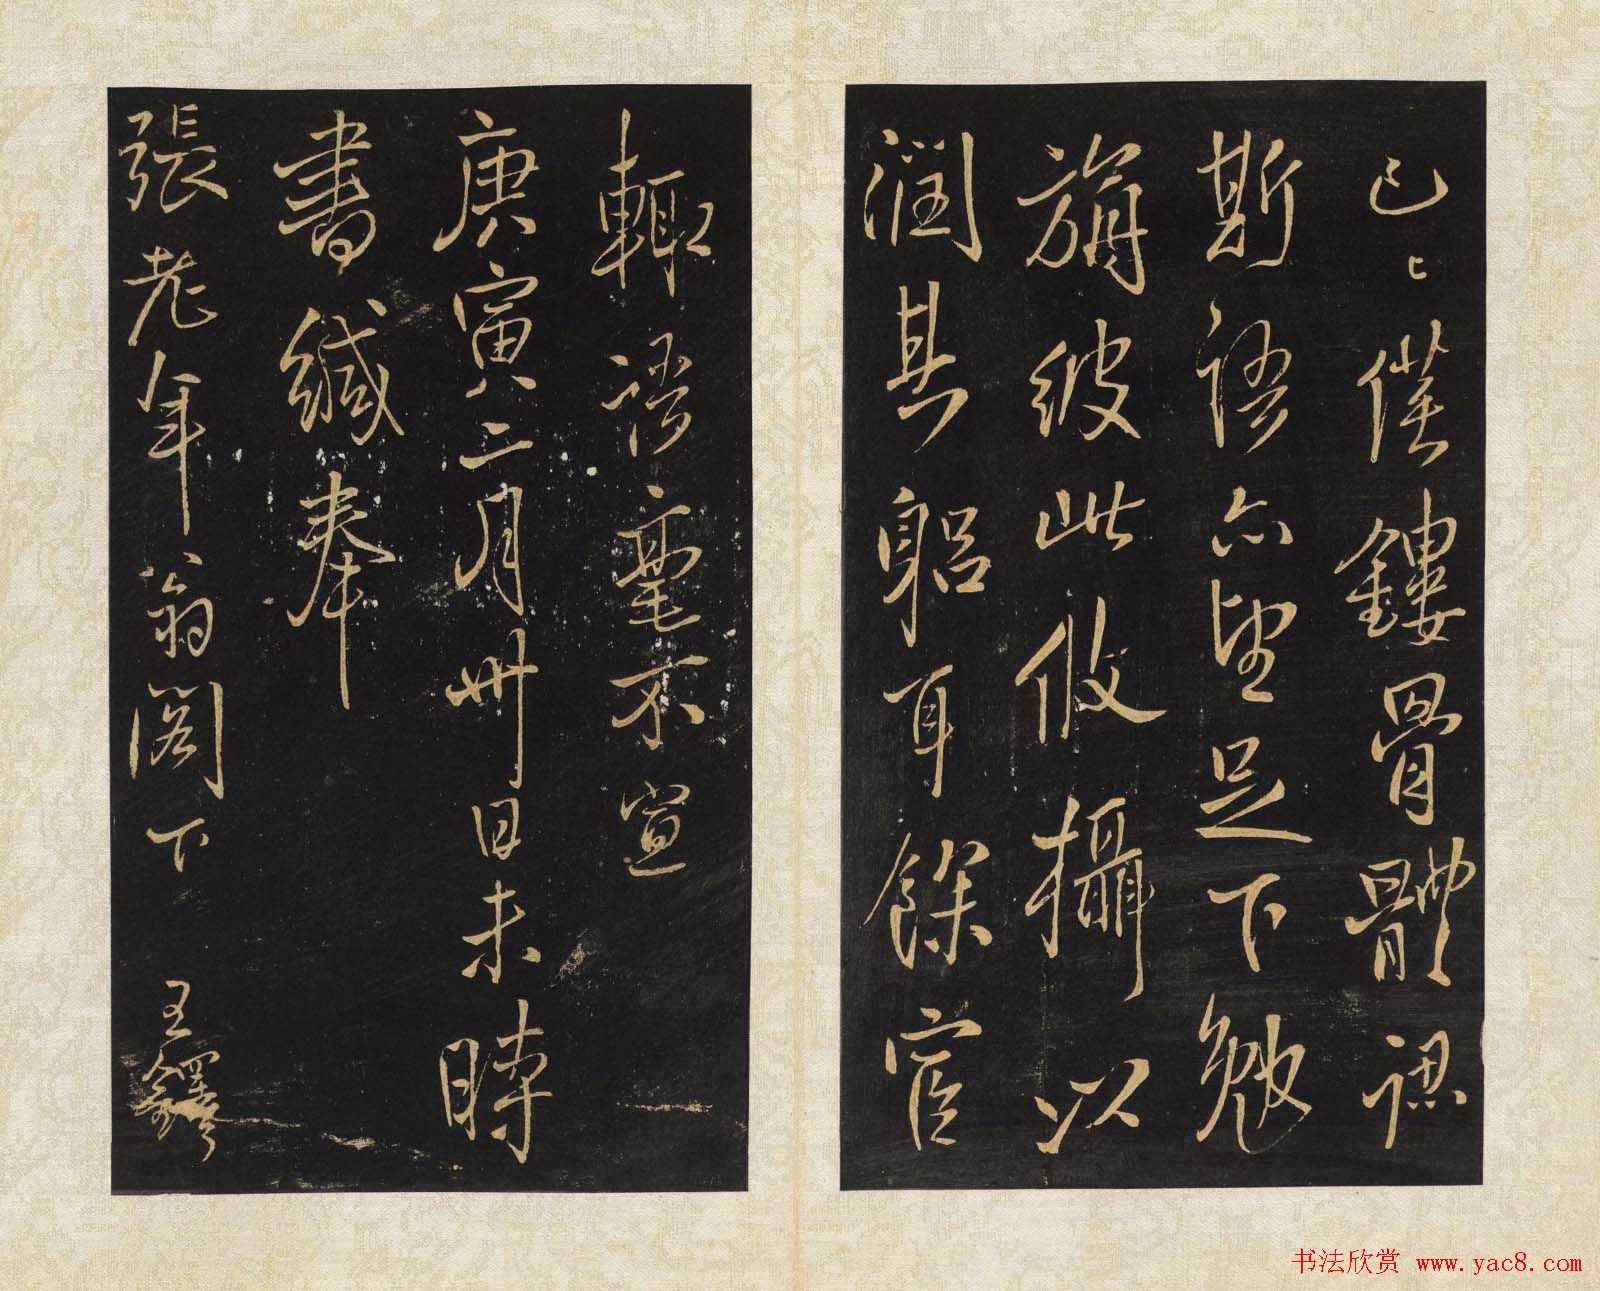 已〻僕鏤骨體認
斯語亦望足下勉
旃彼此攸攝以
潤其躳耳餘官
輒不宣
庚寅二月卅日未時
書緘奉
張老年翁閣下 王鐸
书法欣赏 www.yac8.com